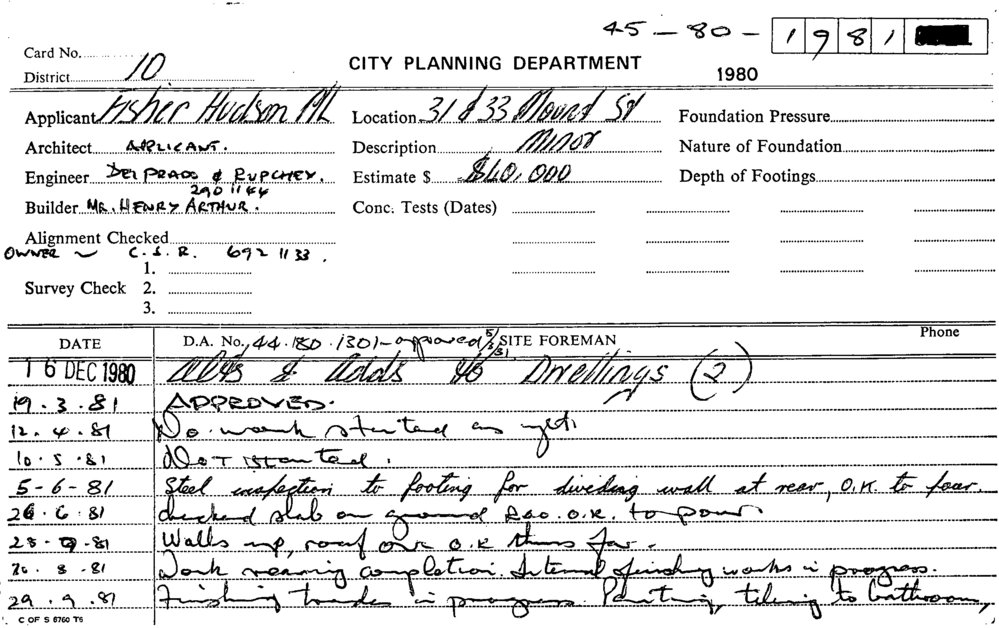 45 - 80 - 1981
Card No.
District 10
CITY PLANNING DEPARTMENT
1980
Applicant Fisher Hudson P/L Location 31 & 33 Mount St Foundation Pressure
Architect APPLICANT. Description Minor Nature of Foundation
Engineer DEL PRADO & RUPCHEY. Estimate $ $60,000 Depth of Footings
290 1144
Builder MR. HENRY ARTHUR. Conc. Tests (Dates)
Alignment Checked
OWNER ~ C.S.R. 692 1133.
1.
Survey Check 2.
3.
DATE D.A. No. 44.180.1301 - approved 5/3/81 SITE FOREMAN Phone
16 DEC 1980 Alts & Adds to Dwellings (2)
19.3.81 APPROVED.
12.4.81 No work started as yet.
10.5.81 NOT started.
5-6-81 Steel inspection to footing for dividing wall at rear, O.K. to pour.
26.6.81 checked slab on ground O.K. to pour
28. .81 Walls up, roof on O.K thus far.
30.8.81 Work nearing completion. Internal finishing works in progress.
29.9.81 Finishing trades in progress. Painting, tiling to bathroom,
C OF S 6760 T6